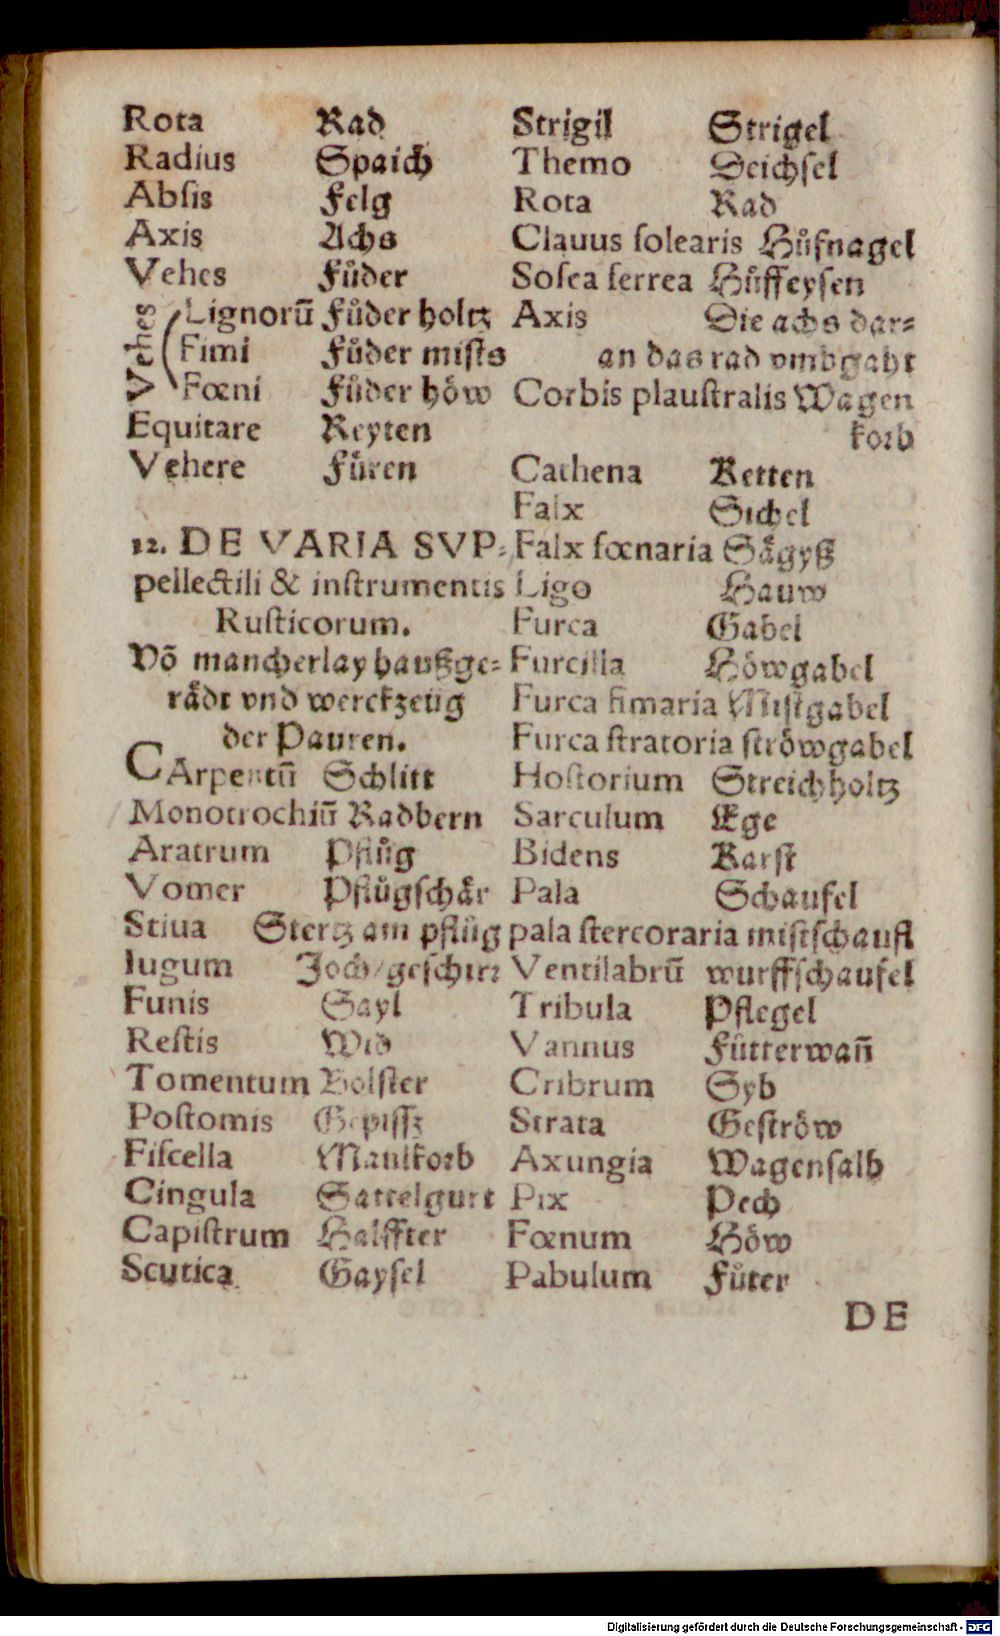 Rota Rad
Radius Spaich
Absis Felg
Axis Achs
Vehes Fůder
Vehes
Lignorū Fůder holtz
Fimi Fůder mists
Fœni Fůder höw
Equitare Reyten
Vehere Fůren
12. DE VARIA SVP-
pellectili & instrumentis
Rusticorum.
Võ mancherlay haußge-
rådt vnd werckzeüg
der Pauren.
CArpentū Schlitt
Monotrochiū Radbern
Aratrum Pflůg
Vomer Pflůgschår
Stiua Stertz am pflůg
Iugum Joch/geschirr
Funis Sayl
Restis Wid
Tomentum Bolster
Postomis
Fiscella Maulkorb
Cingula Sattelgurt
Capistrum Halffter
Scutica Gaysel
Strigil Strigel
Themo Deichsel
Rota Rad
Clauus solearis Hůfnagel
Solea ferrea Hůffeysen
Axis Die achs dar-
an das rad vmbgaht
Corbis plaustralis Wagen
korb
Cathena Ketten
Falx Sichel
Falx fœnaria Sågyß
Ligo Hauw
Furca Gabel
Furcilla Höwgabel
Furca fimaria Mistgabel
Furca stratoria ströwgabel
Hostorium Streichholtz
Sarculum Ege
Bidens Karst
Pala Schaufel
pala stercoraria mistschaufl
Ventilabrū wurffschaufel
Tribula Pflegel
Vannus Fůtterwañ
Cribrum Syb
Strata Geströw
Axungia Wagensalb
Pix Pech
Fœnum Höw
Pabulum Fůter
DE
Digitalisierung gefördert durch die Deutsche Forschungsgemeinschaft - DFG